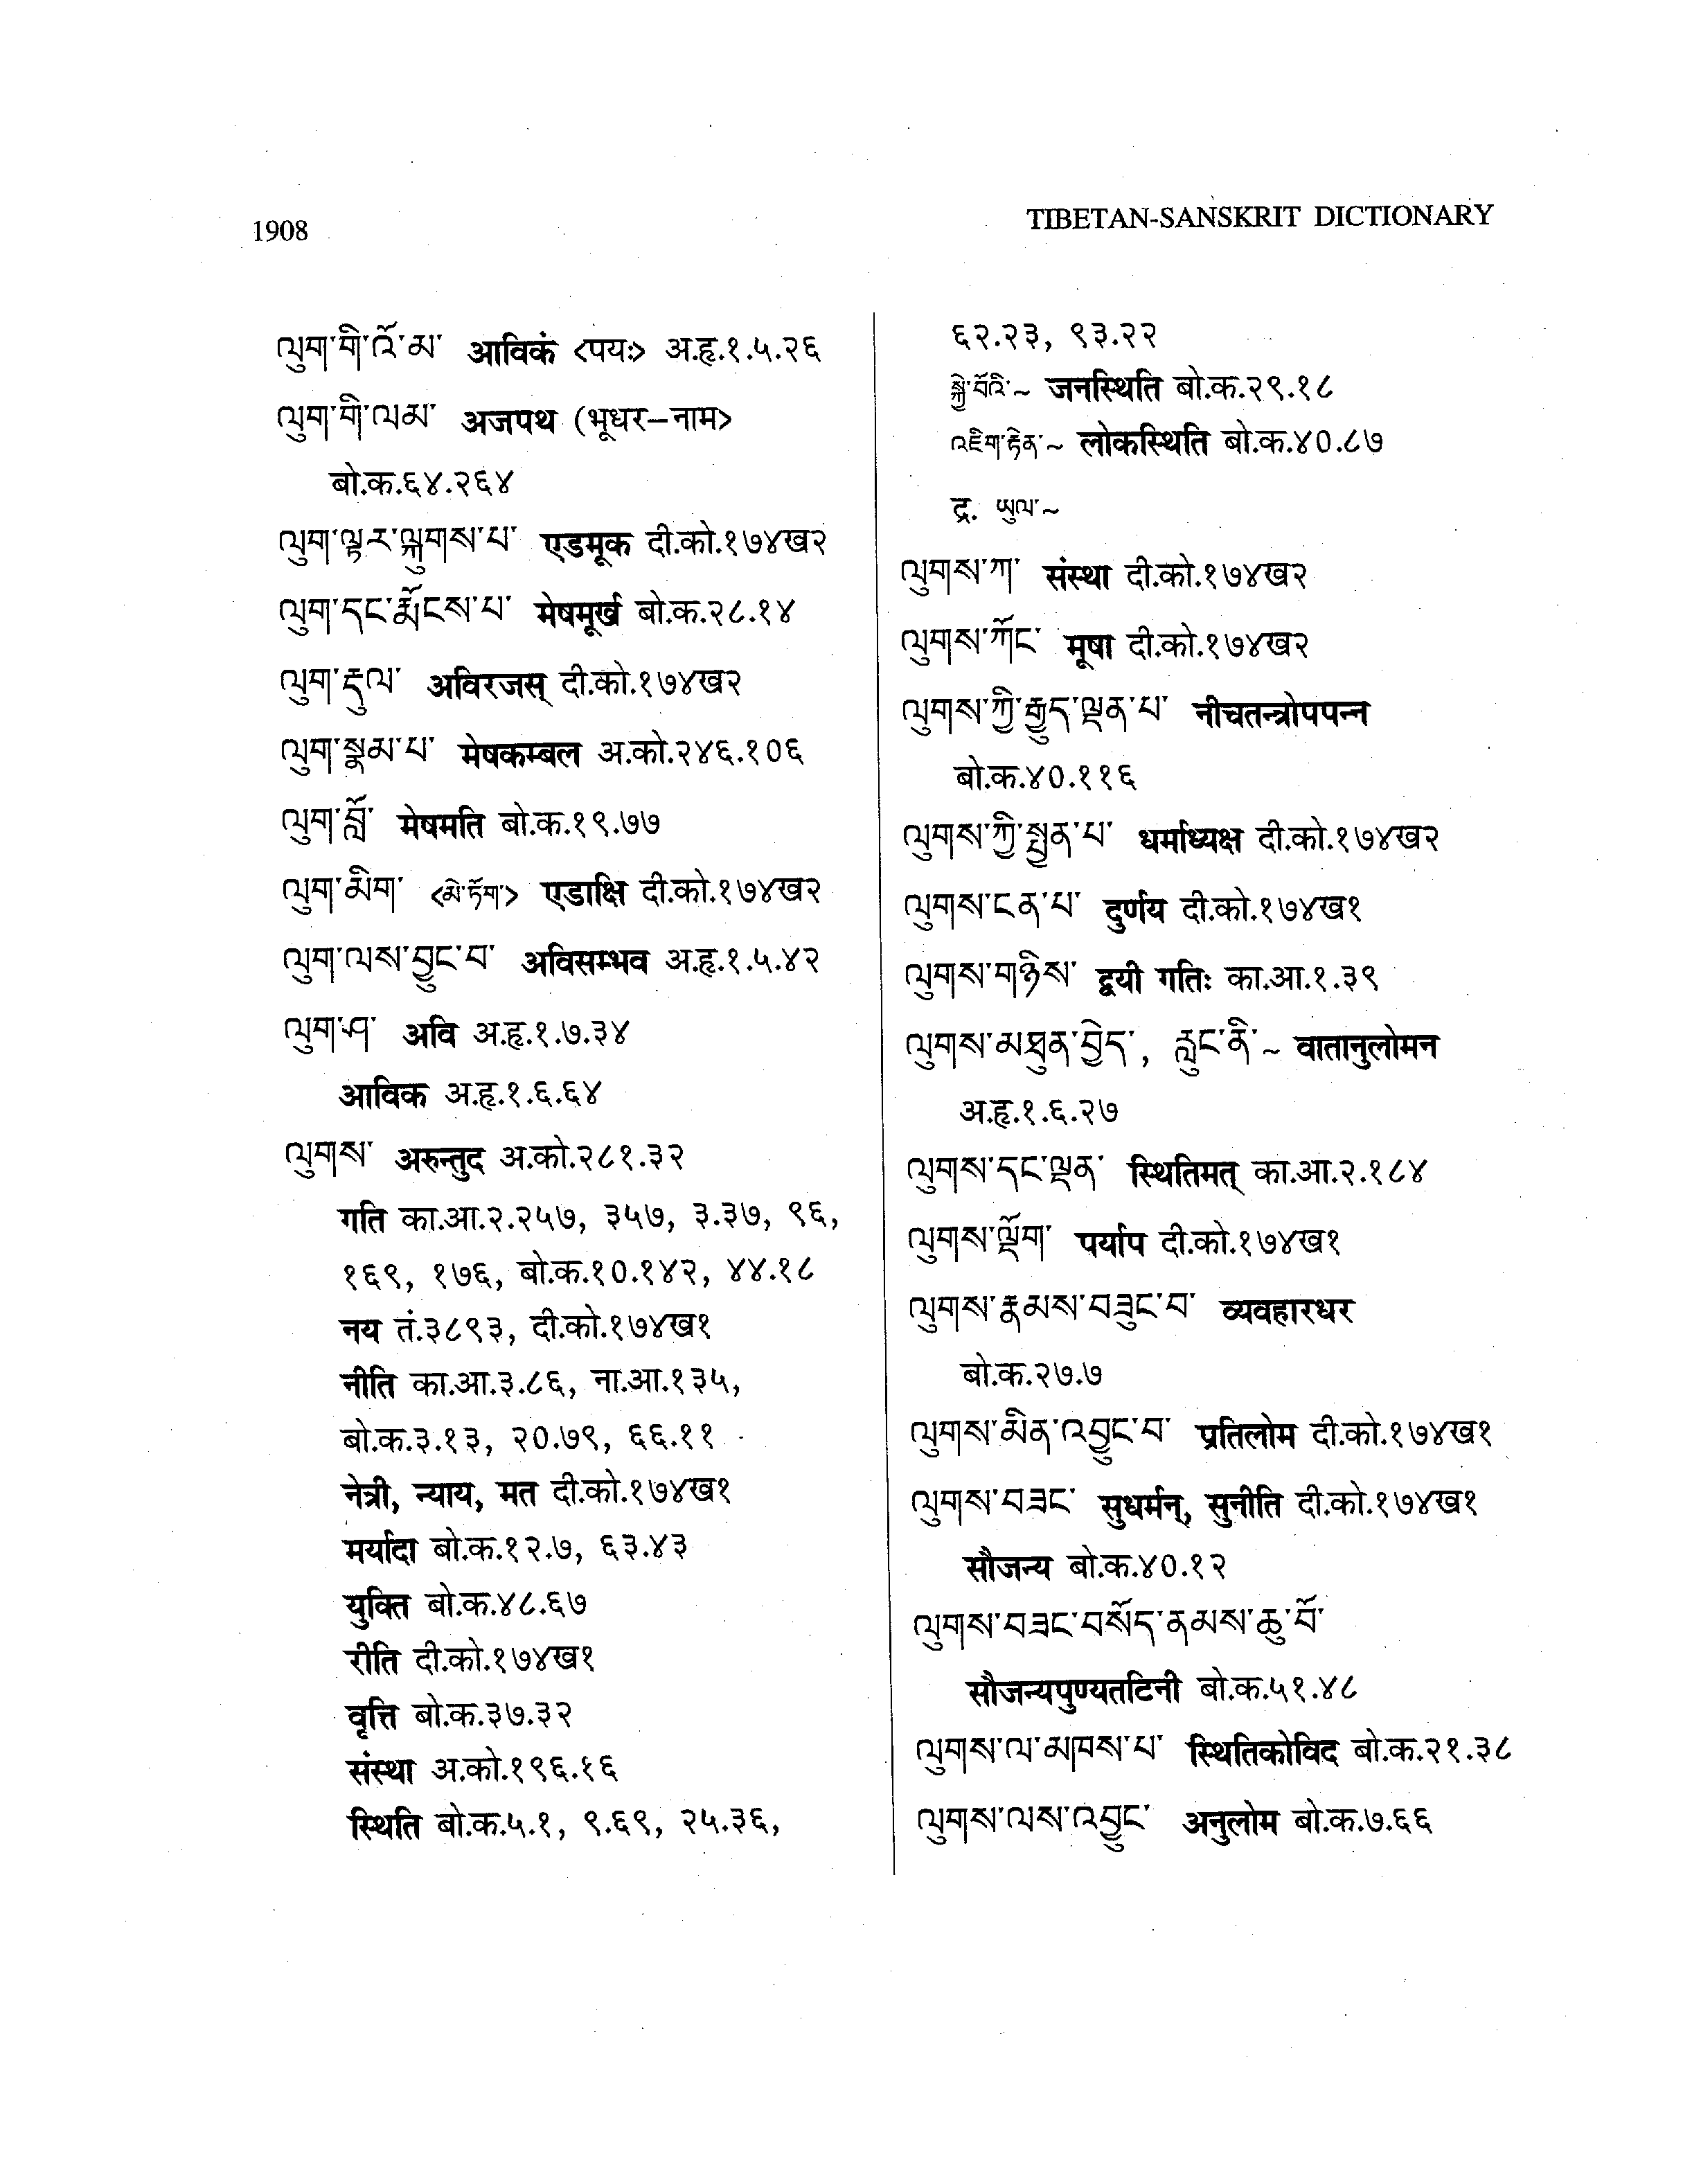 1908
TIBETAN-SANSKRIT DICTIONARY
ལུག་གི་འོ་མ་ आविकं <पयः> अ.हृ.१.५.२६
ལུག་གི་ལམ་ अजपथ (भूधर–नाम>
बो.क.६४.२६४
ལུག་ལྟར་ལྐུགས་པ་ एडमूक दी.को.१७४ख२
ལུག་དང་རྨོངས་པ་ मेषमूर्ख बो.क.२८.१४
ལུག་རྡུལ་ अविरजस् दी.को.१७४ख२
ལུག་སྣམ་པ་ मेषकम्बल अ.को.२४६.१०६
ལུག་བློ་ मेषमति बो.क.१९.७७
ལུག་མིག་ <མེ་ཏོག་> एडाक्षि दी.को.१७४ख२
ལུག་ལས་བྱུང་བ་ अविसम्भव अ.हृ.१.५.४२
ལུག་ཤ་ अवि अ.हृ.१.७.३४
आविक अ.हृ.१.६.६४
ལུགས་ अरुन्तुद अ.को.२८१.३२
गति का.आ.२.२५७, ३५७, ३.३७, ९६,
१६९, १७६, बो.क.१०.१४२, ४४.१८
नय तं.३८९३, दी.को.१७४ख१
नीति का.आ.३.८६, ना.आ.१३५,
बो.क.३.१३, २०.७९, ६६.११
नेत्री, न्याय, मत दी.को.१७४ख१
मर्यादा बो.क.१२.७, ६३.४३
युक्ति बो.क.४८.६७
रीति दी.को.१७४ख१
वृत्ति बो.क.३७.३२
संस्था अ.को.१९६.१६
स्थिति बो.क.५.१, ९.६९, २५.३६,
६२.२३, ९३.२२
སྐྱེ་བོའི་~ जनस्थिति बो.क.२९.१८
འཇིག་རྟེན་~ लोकस्थिति बो.क.४०.८७
द्र. ཡུལ་~
ལུགས་ཀ་ संस्था दी.को.१७४ख२
ལུགས་ཀོང་ मूषा दी.को.१७४ख२
ལུགས་ཀྱི་རྒྱུད་ལྡན་པ་ नीचतन्त्रोपपन्न
बो.क.४०.११६
ལུགས་ཀྱི་སྤྱན་པ་ धर्माध्यक्ष दी.को.१७४ख२
ལུགས་ངན་པ་ दुर्णय दी.को.१७४ख१
ལུགས་གཉིས་ द्वयी गतिः का.आ.१.३९
ལུགས་མཐུན་བྱེད་, རླུང་ནི་~ वातानुलोमन
अ.हृ.१.६.२७
ལུགས་དང་ལྡན་ स्थितिमत् का.आ.२.१८४
ལུགས་ལྡོག་ पर्याप दी.को.१७४ख१
ལུགས་རྣམས་བཟུང་བ་ व्यवहारधर
बो.क.२७.७
ལུགས་མིན་འབྱུང་བ་ प्रतिलोम दी.को.१७४ख१
ལུགས་བཟང་ सुधर्मन्, सुनीति दी.को.१७४ख१
सौजन्य बो.क.४०.१२
ལུགས་བཟང་བསོད་ནམས་ཆུ་བོ་
सौजन्यपुण्यतटिनी बो.क.५१.४८
ལུགས་ལ་མཁས་པ་ स्थितिकोविद बो.क.२१.३८
ལུགས་ལས་འབྱུང་ अनुलोम बो.क.७.६६